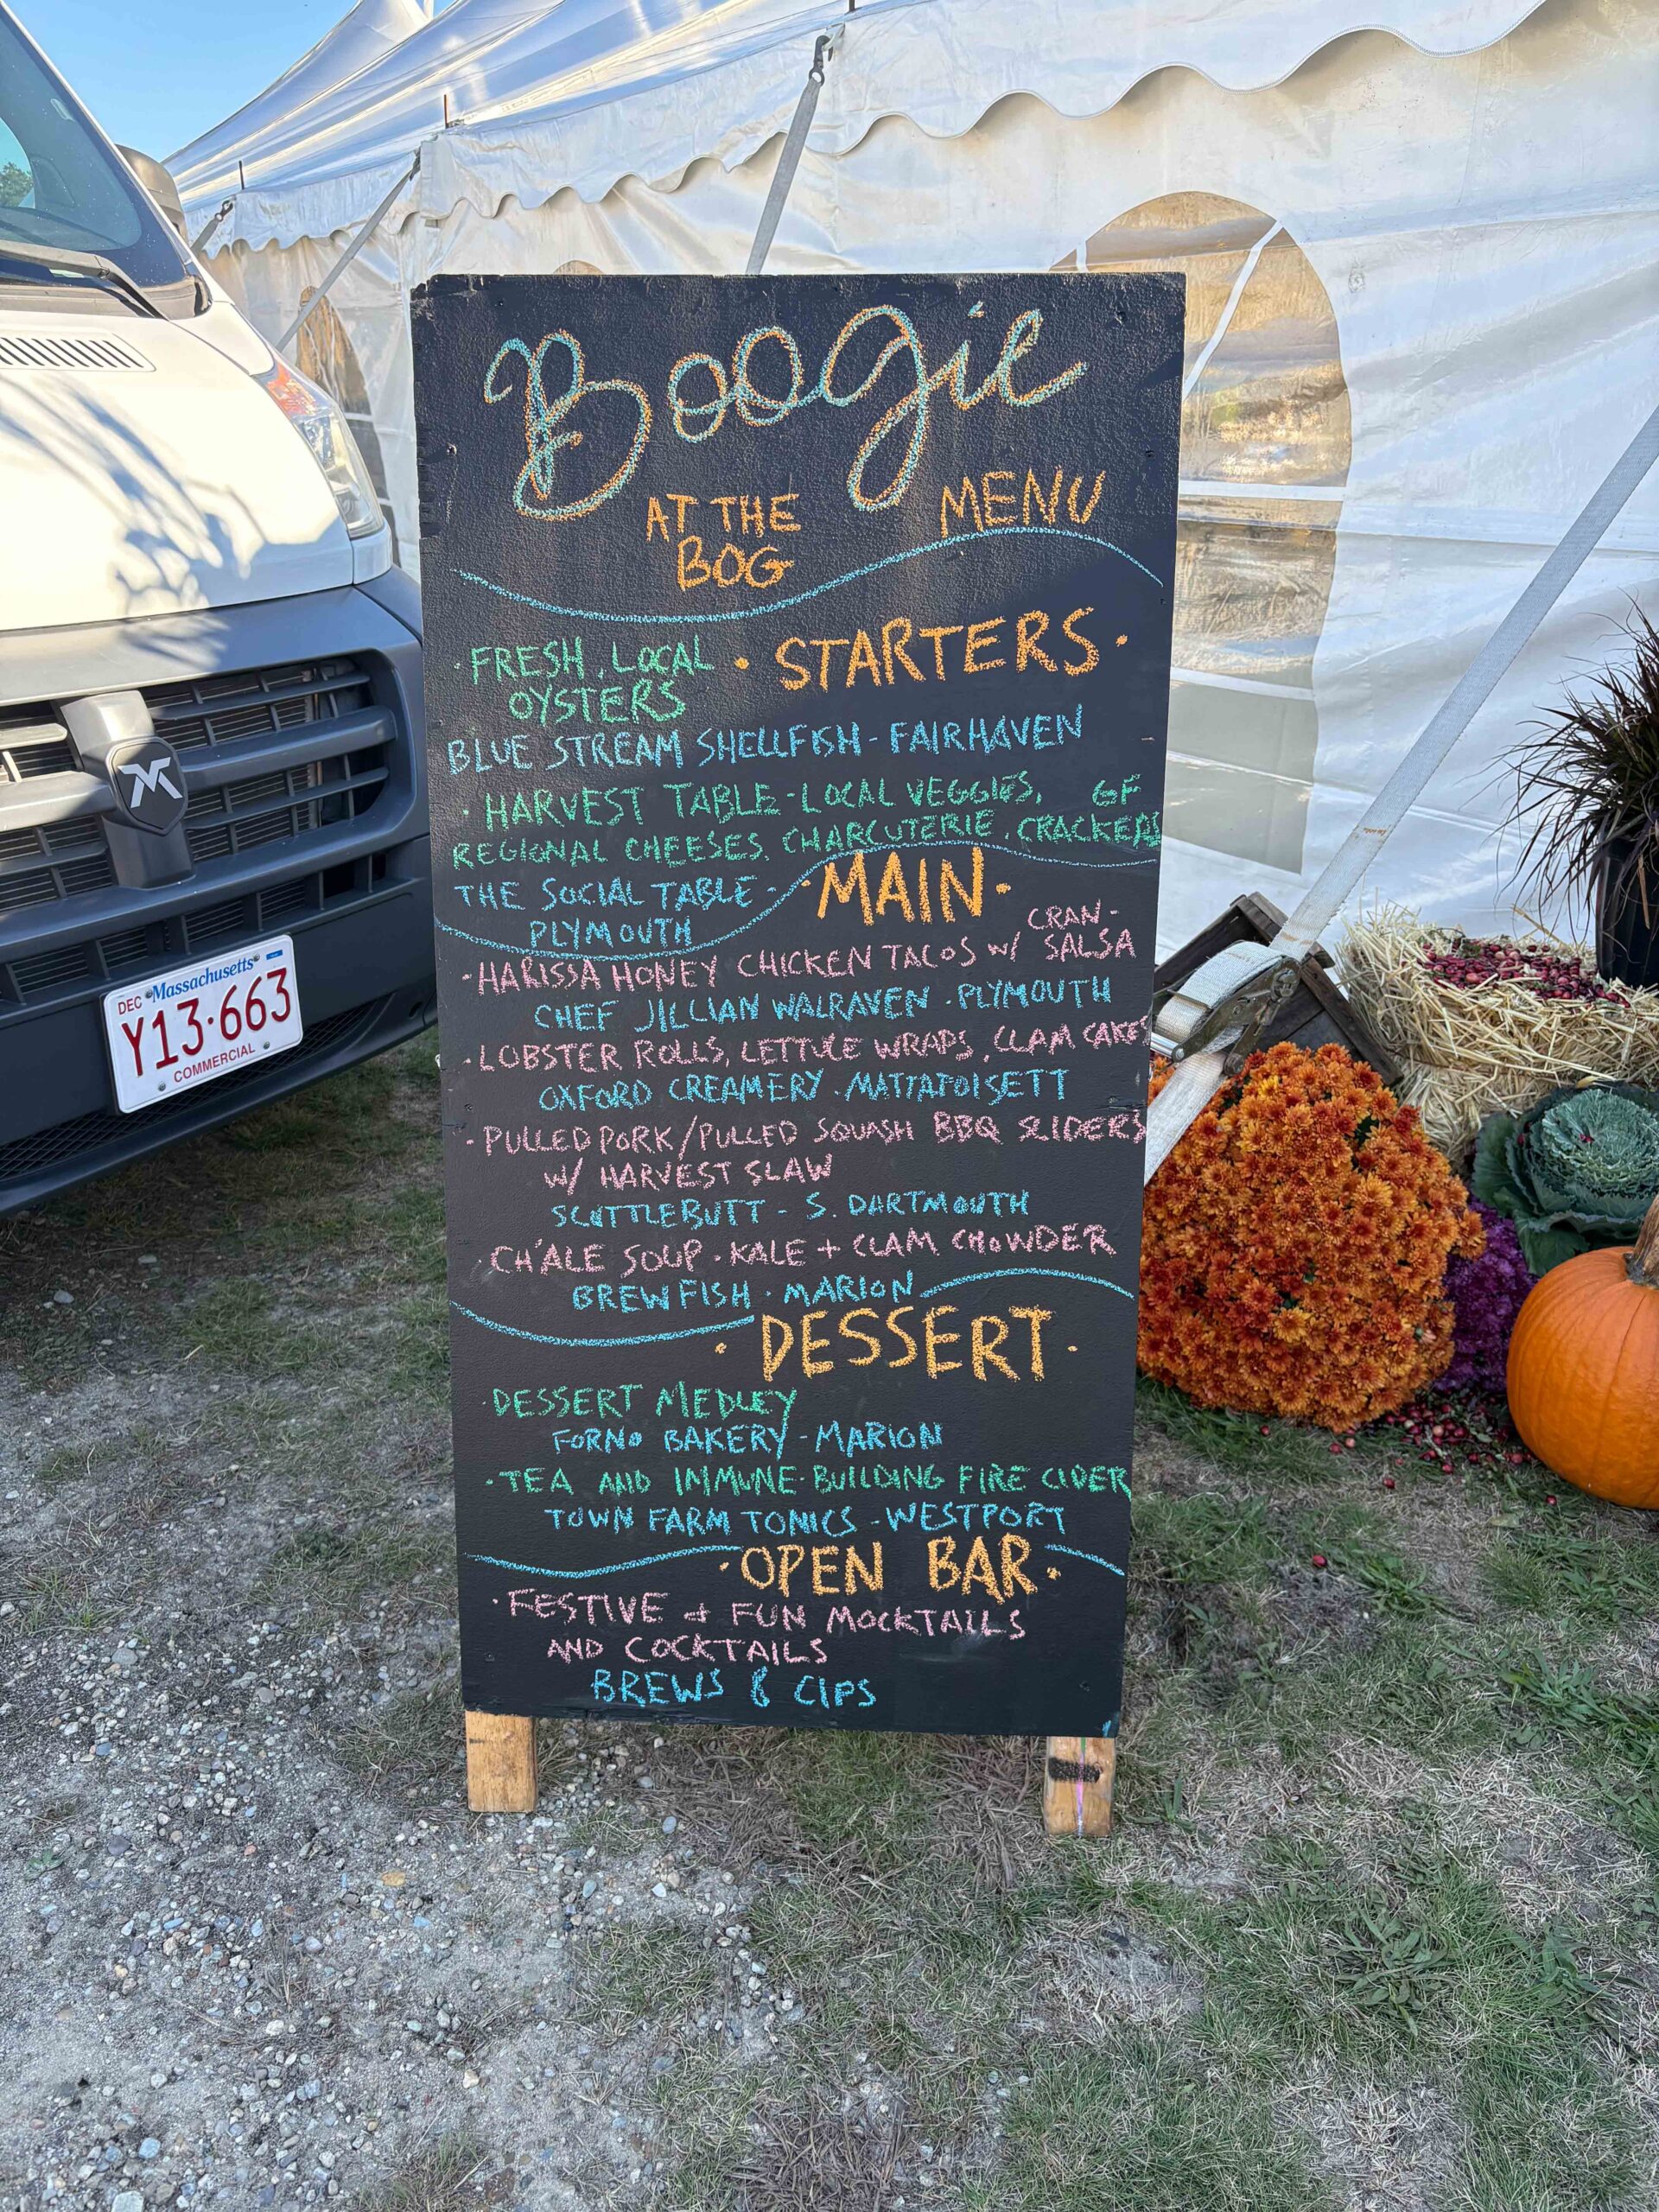 Boogie
AT THE
BOG
MENU
· STARTERS ·
· FRESH, LOCAL
OYSTERS
BLUE STREAM SHELLFISH - FAIRHAVEN
· HARVEST TABLE - LOCAL VEGGIES, GF
REGIONAL CHEESES, CHARCUTERIE, CRACKERS
THE SOCIAL TABLE -
PLYMOUTH
· MAIN ·
· HARISSA HONEY CHICKEN TACOS W/ CRAN-
SALSA
CHEF JILLIAN WALRAVEN · PLYMOUTH
· LOBSTER ROLLS, LETTUCE WRAPS, CLAM CAKES
OXFORD CREAMERY · MATTATOISETT
· PULLED PORK/PULLED SQUASH BBQ SLIDERS
W/ HARVEST SLAW
SCUTTLEBUTT - S. DARTMOUTH
· CH'ALE SOUP · KALE + CLAM CHOWDER
BREWFISH · MARION
· DESSERT ·
· DESSERT MEDLEY
FORNO BAKERY - MARION
· TEA AND IMMUNE-BUILDING FIRE CIDER
TOWN FARM TONICS - WESTPORT
· OPEN BAR ·
· FESTIVE + FUN MOCKTAILS
AND COCKTAILS
BREWS & CIPS
DEC Massachusetts
Y13·663
COMMERCIAL